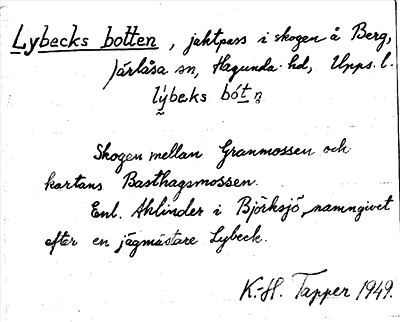 Lybecks botten, jaktpass i skogen å Berg,
Järlåsa sn, Hagunda hd, Upps. l.
lýbeks bót n̥
Skogen mellan Granmossen och
kartans Basthagsmossen.
Enl. Ahlinder i Björksjö, namngivet
efter en jägmästare Lybeck.
K.-H. Tapper 1949.